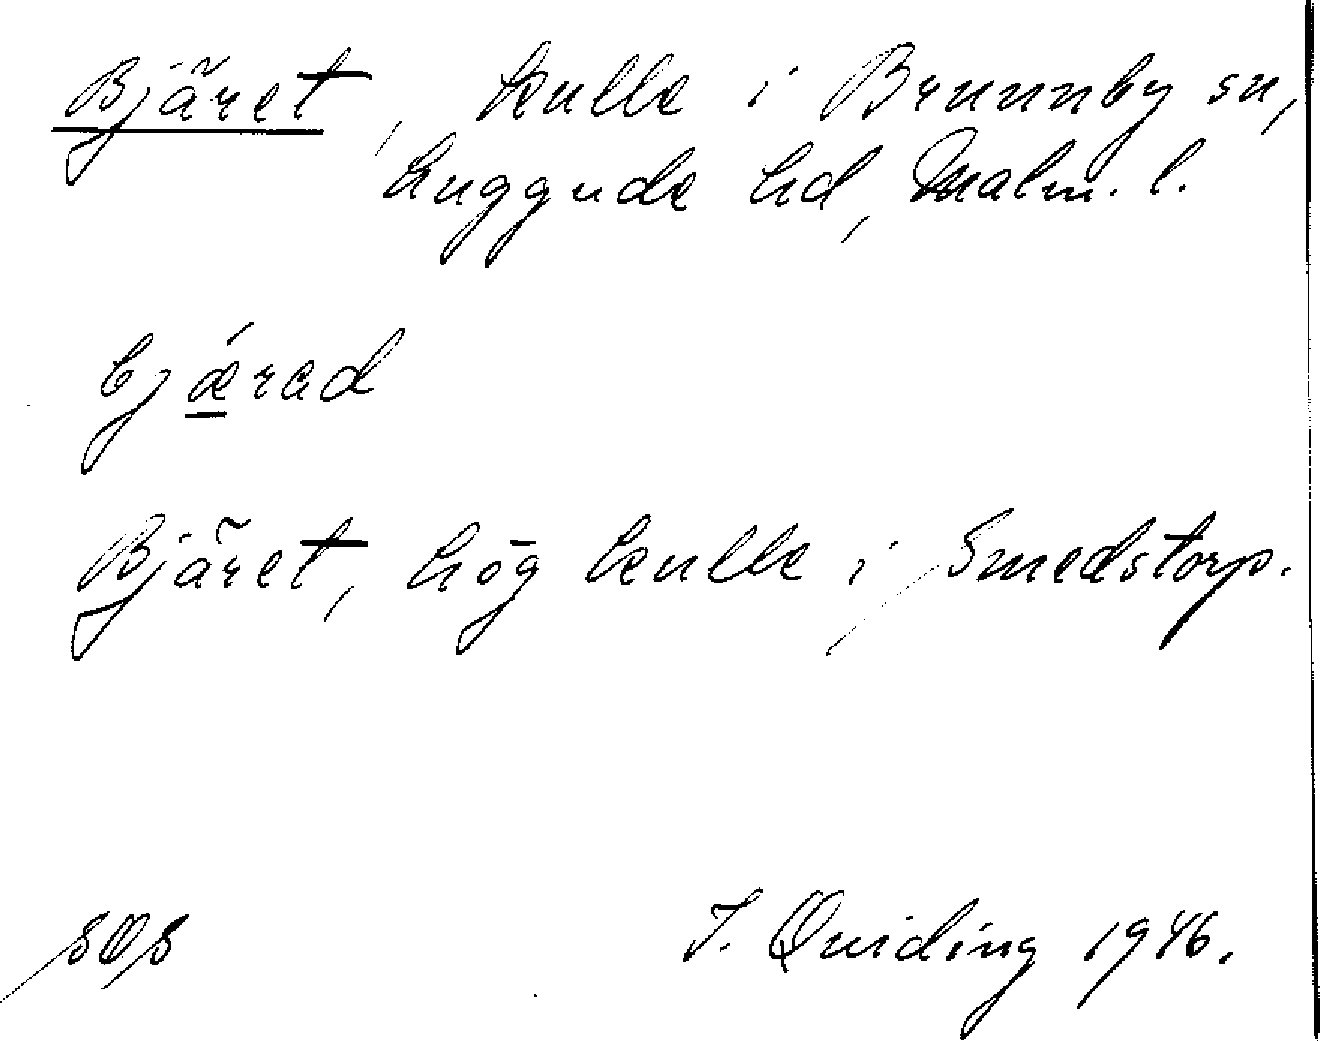 Bjäret, kulle i Brunnby sn,
Luggude hd, Malm. l.
bjǽrad
Bjäret, hög kulle i Smedstorp.
SOS
I. Quiding 1946.